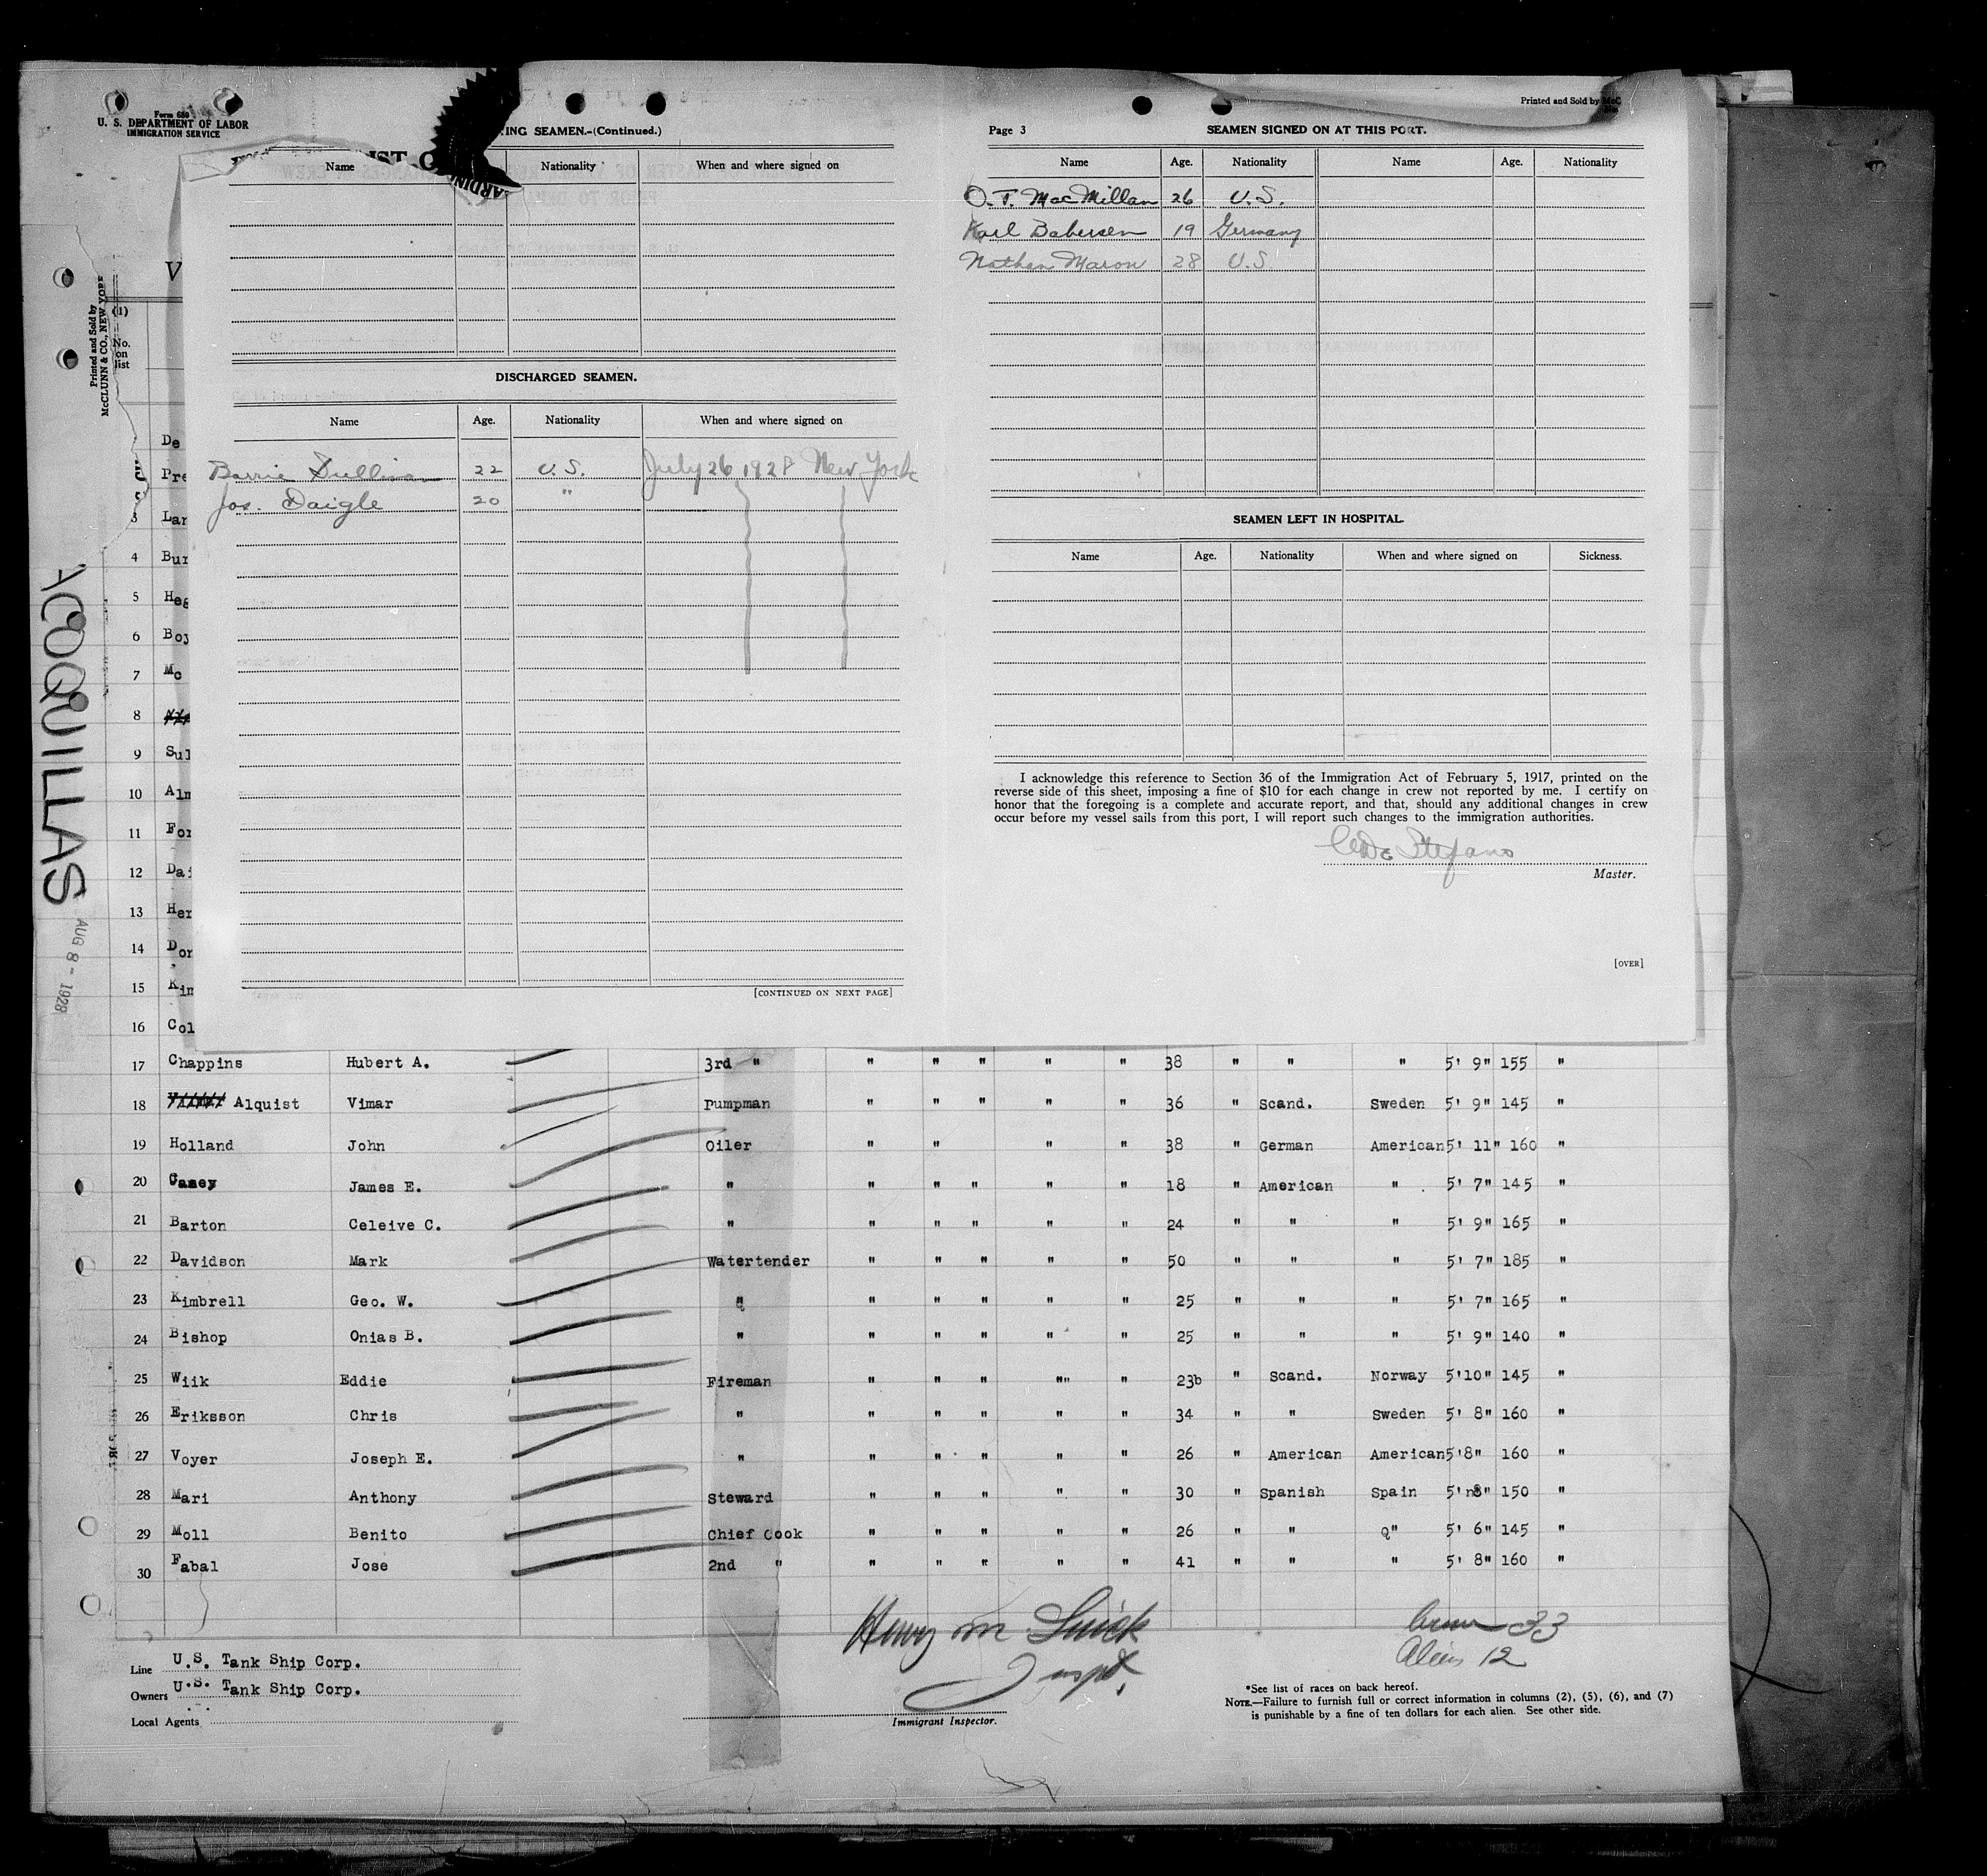 Form 680
U. S. DEPARTMENT OF LABOR
IMMIGRATION SERVICE
Printed and Sold by
McCLUNN & CO., NEW YORK
(1)
No.
on
list
ACOQUILLAS
AUG 8 - 1928
ING SEAMEN.-(Continued.)
Name Nationality When and where signed on
DISCHARGED SEAMEN.
Name Age. Nationality When and where signed on
Barrie Sullivan 22 U.S. July 26 1928 New York
Jos. Daigle 20 "
[CONTINUED ON NEXT PAGE]
Printed and Sold by McC
Page 3 SEAMEN SIGNED ON AT THIS PORT.
Name Age. Nationality Name Age. Nationality
O. T. MacMillan 26 U.S.
Karl Babersen 19 Germany
Nathan Maron 28 U.S.
SEAMEN LEFT IN HOSPITAL.
Name Age. Nationality When and where signed on Sickness.
I acknowledge this reference to Section 36 of the Immigration Act of February 5, 1917, printed on the
reverse side of this sheet, imposing a fine of $10 for each change in crew not reported by me. I certify on
honor that the foregoing is a complete and accurate report, and that, should any additional changes in crew
occur before my vessel sails from this port, I will report such changes to the immigration authorities.
De Stefano
Master.
[OVER]
De
Pre
3 Lar
4 Bur
5 Heg
6 Boy
7 Mc
8
9 Sul
10 Alm
11 For
12 Dai
13 Her
14 Don
15 Kim
16 Col
17 Chappins Hubert A. 3rd " " " " " " 38 " " " 5' 9" 155 "
18 Alquist Vimar Pumpman " " " " " 36 " Scand. Sweden 5' 9" 145 "
19 Holland John Oiler " " " " 38 " German American 5' 11" 160 "
20 Caney James E. " " " " " " 18 " American " 5' 7" 145 "
21 Barton Celeive C. " " " " " " 24 " " " 5' 9" 165 "
22 Davidson Mark Watertender " " " " " 50 " " " 5' 7" 185 "
23 Kimbrell Geo. W. " " " " " " 25 " " " 5' 7" 165 "
24 Bishop Onias B. " " " " " " 25 " " " 5' 9" 140 "
25 Wiik Eddie Fireman " " " "" " 23b " Scand. Norway 5'10" 145 "
26 Eriksson Chris " " " " " " 34 " " Sweden 5' 8" 160 "
27 Voyer Joseph E. " " " " " " 26 " American American 5'8" 160 "
28 Mari Anthony Steward " " " " " 30 " Spanish Spain 5' 8" 150 "
29 Moll Benito Chief Cook " " " " " 26 " " Q" 5' 6" 145 "
30 Fabal Jose 2nd " " " " " " 41 " " " 5' 8" 160 "
Line U.S. Tank Ship Corp.
Owners U.S. Tank Ship Corp.
Local Agents
Inspt.
Immigrant Inspector.
33
Aliens 12
*See list of races on back hereof.
NOTE.—Failure to furnish full or correct information in columns (2), (5), (6), and (7)
is punishable by a fine of ten dollars for each alien. See other side.